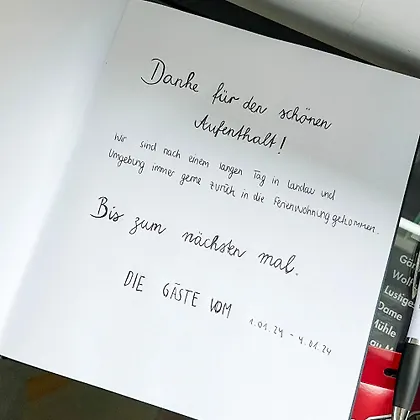 Danke für den schönen
Aufenthalt!
Wir sind nach einem langen Tag in Landau und
Umgebung immer gerne zurück in die Ferienwohnung gekommen.
Bis zum nächsten mal.
DIE GÄSTE VOM 1.01.24 - 4.01.24
Lustige
Dame
Mühle